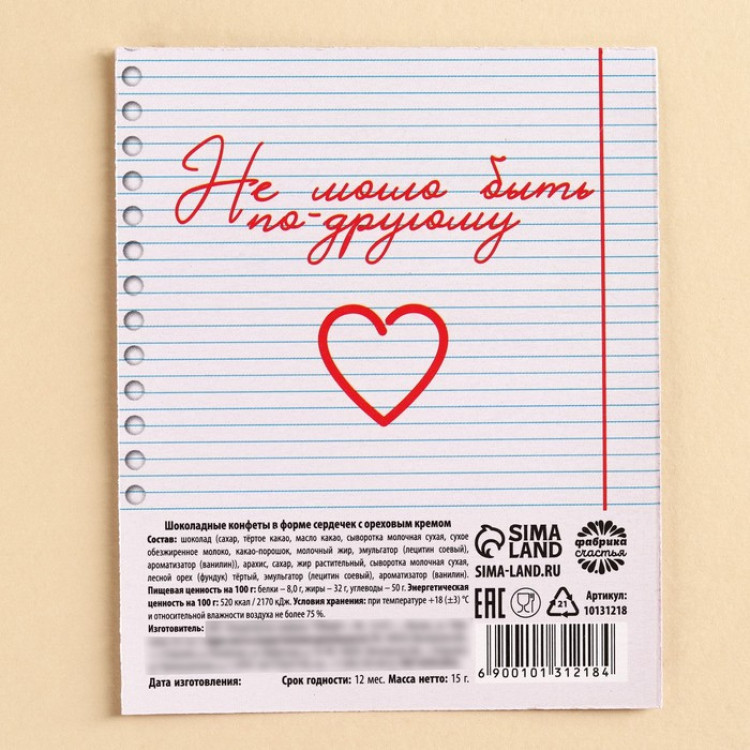 Не могло быть
по-другому
Шоколадные конфеты в форме сердечек с ореховым кремом
Состав: шоколад (сахар, тёртое какао, масло какао, сыворотка молочная сухая, сухое
обезжиренное молоко, какао-порошок, молочный жир, эмульгатор (лецитин соевый),
ароматизатор (ванилин)), арахис, сахар, жир растительный, сыворотка молочная сухая,
лесной орех (фундук) тёртый, эмульгатор (лецитин соевый), ароматизатор (ванилин).
Пищевая ценность на 100 г: белки – 8,0 г, жиры – 32 г, углеводы – 50 г. Энергетическая
ценность на 100 г: 520 ккал / 2170 кДж. Условия хранения: при температуре +18 (±3) °C
и относительной влажности воздуха не более 75 %.
Изготовитель:
Дата изготовления: Срок годности: 12 мес. Масса нетто: 15 г.
SIMA
LAND
SIMA-LAND.RU
фабрика
счастья
EAC
21
Артикул:
10131218
6 900101 312184